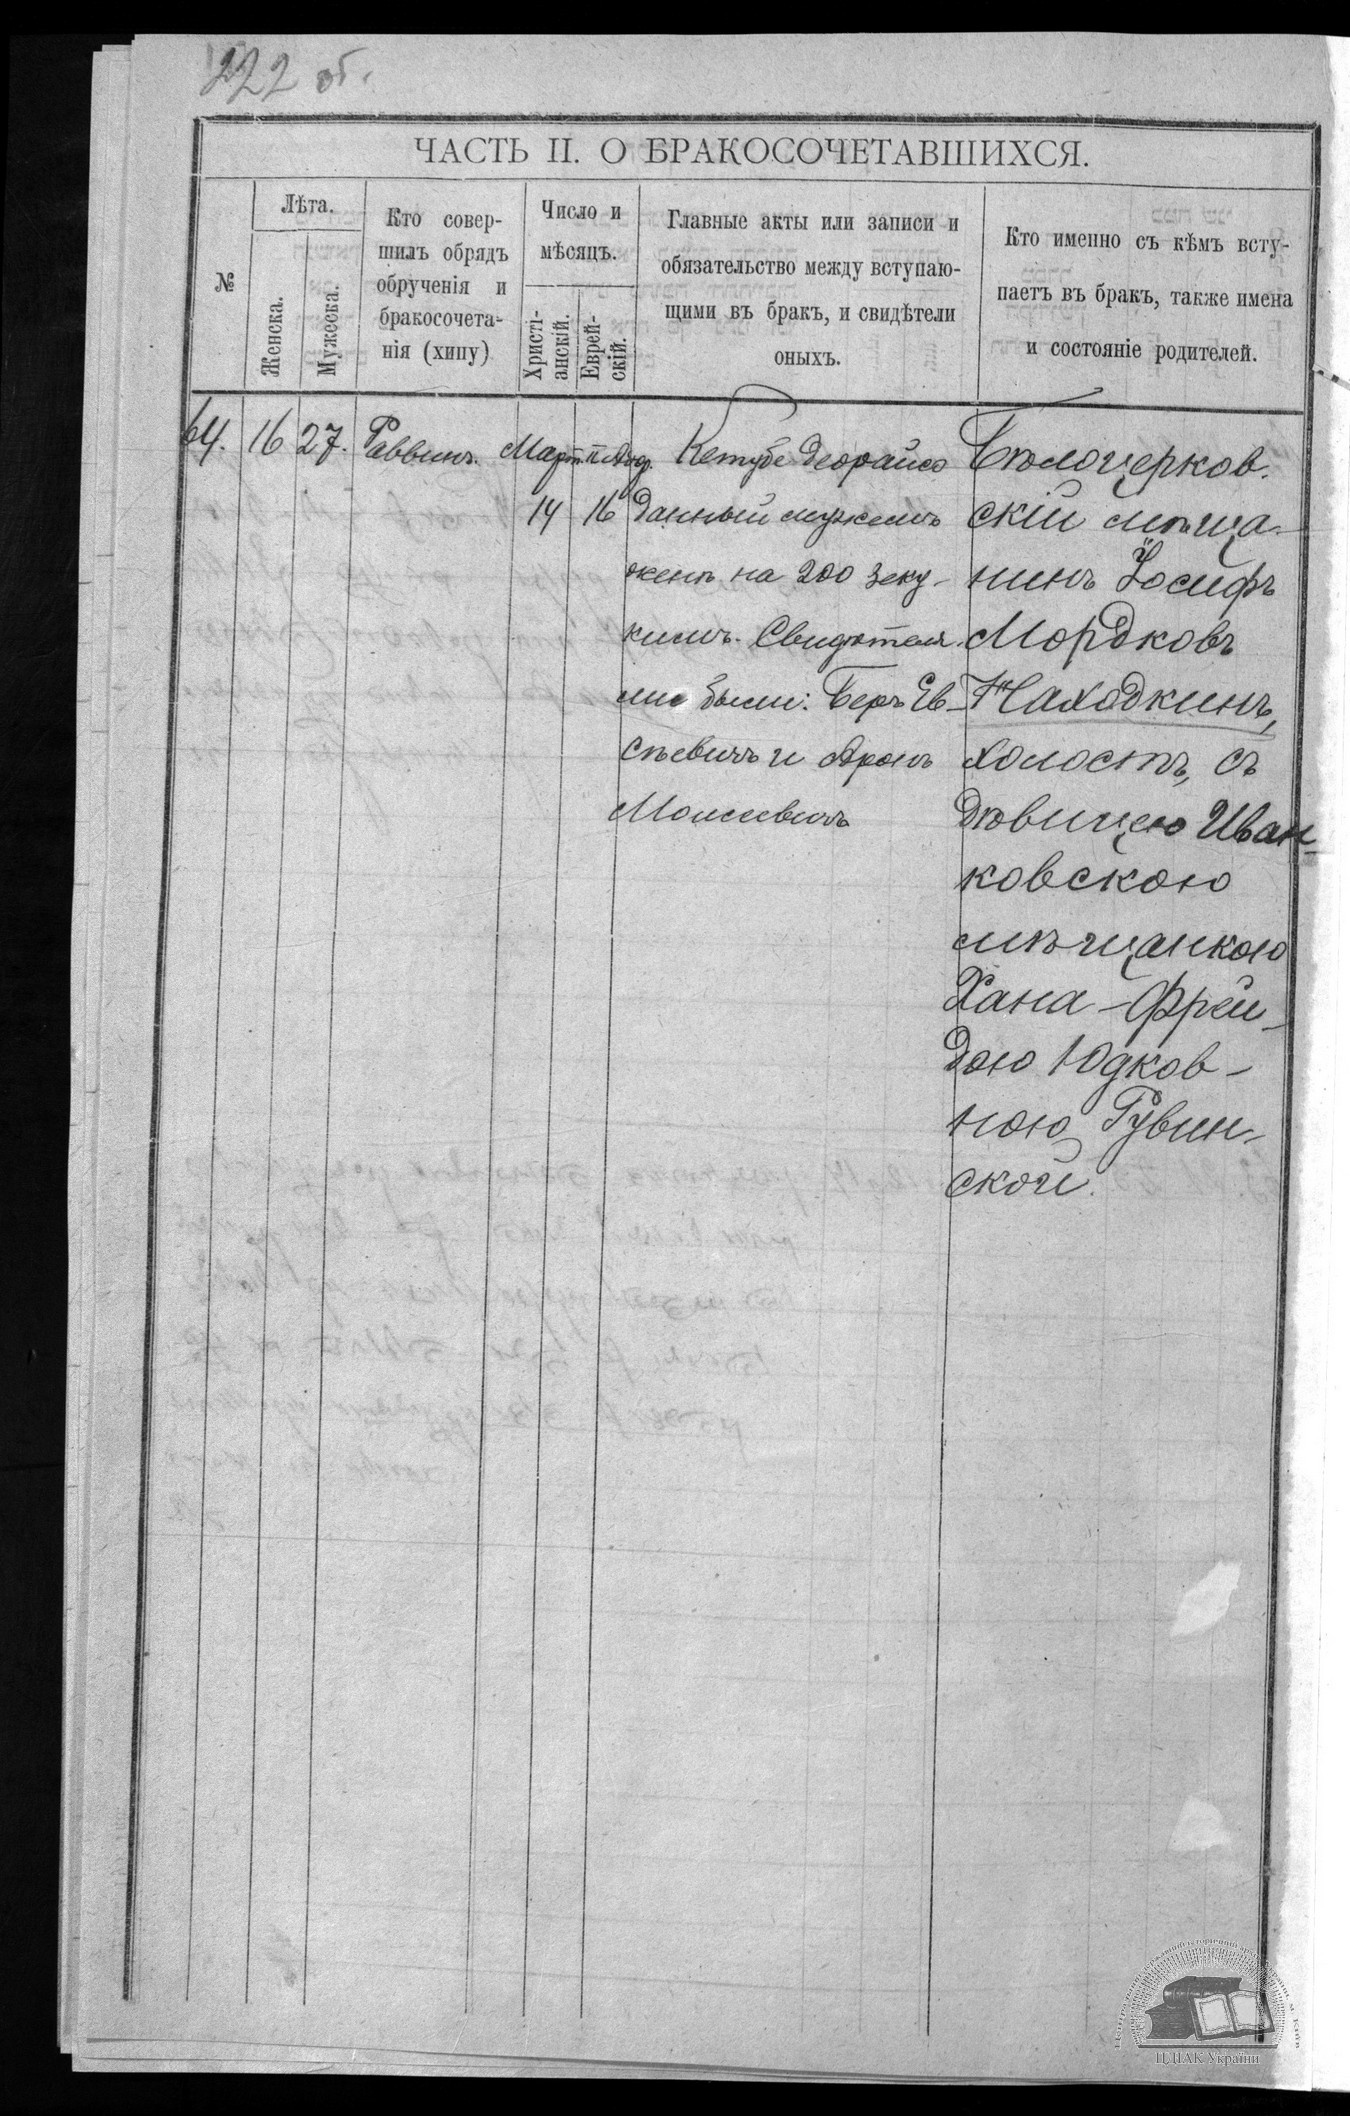 222 об.
ЧАСТЬ II. О БРАКОСОЧЕТАВШИХСЯ.
№
Лѣта.
Женска.
Мужеска.
Кто совер-
шилъ обрядъ
обрученія и
бракосочета-
нія (хипу)
Число и
мѣсяцъ.
Христі-
анскій.
Еврей-
скій.
Главные акты или записи и
обязательство между вступаю-
щими въ бракъ, и свидѣтели
оныхъ.
Кто именно съ кѣмъ всту-
паетъ въ бракъ, также имена
и состояніе родителей.
64.
16
27.
Раввинъ.
Март.
14
II Адр.
16
Кетубе деорайсо
данный мужемъ
женѣ на 200 зеку-
кимъ. Свидѣтеля-
ми были: Беръ Ев-
сѣевичъ и Аронъ
Моисеевичъ
Бѣлоцерков-
скій мѣща-
нинъ Іосифъ
Мордковъ
Находкинъ,
холостъ, съ
дѣвицею Иван-
ковскою
мѣщанкою
Хана-Фрей-
дою Юдков-
ною Рувин-
ской.
ЦДІАК України